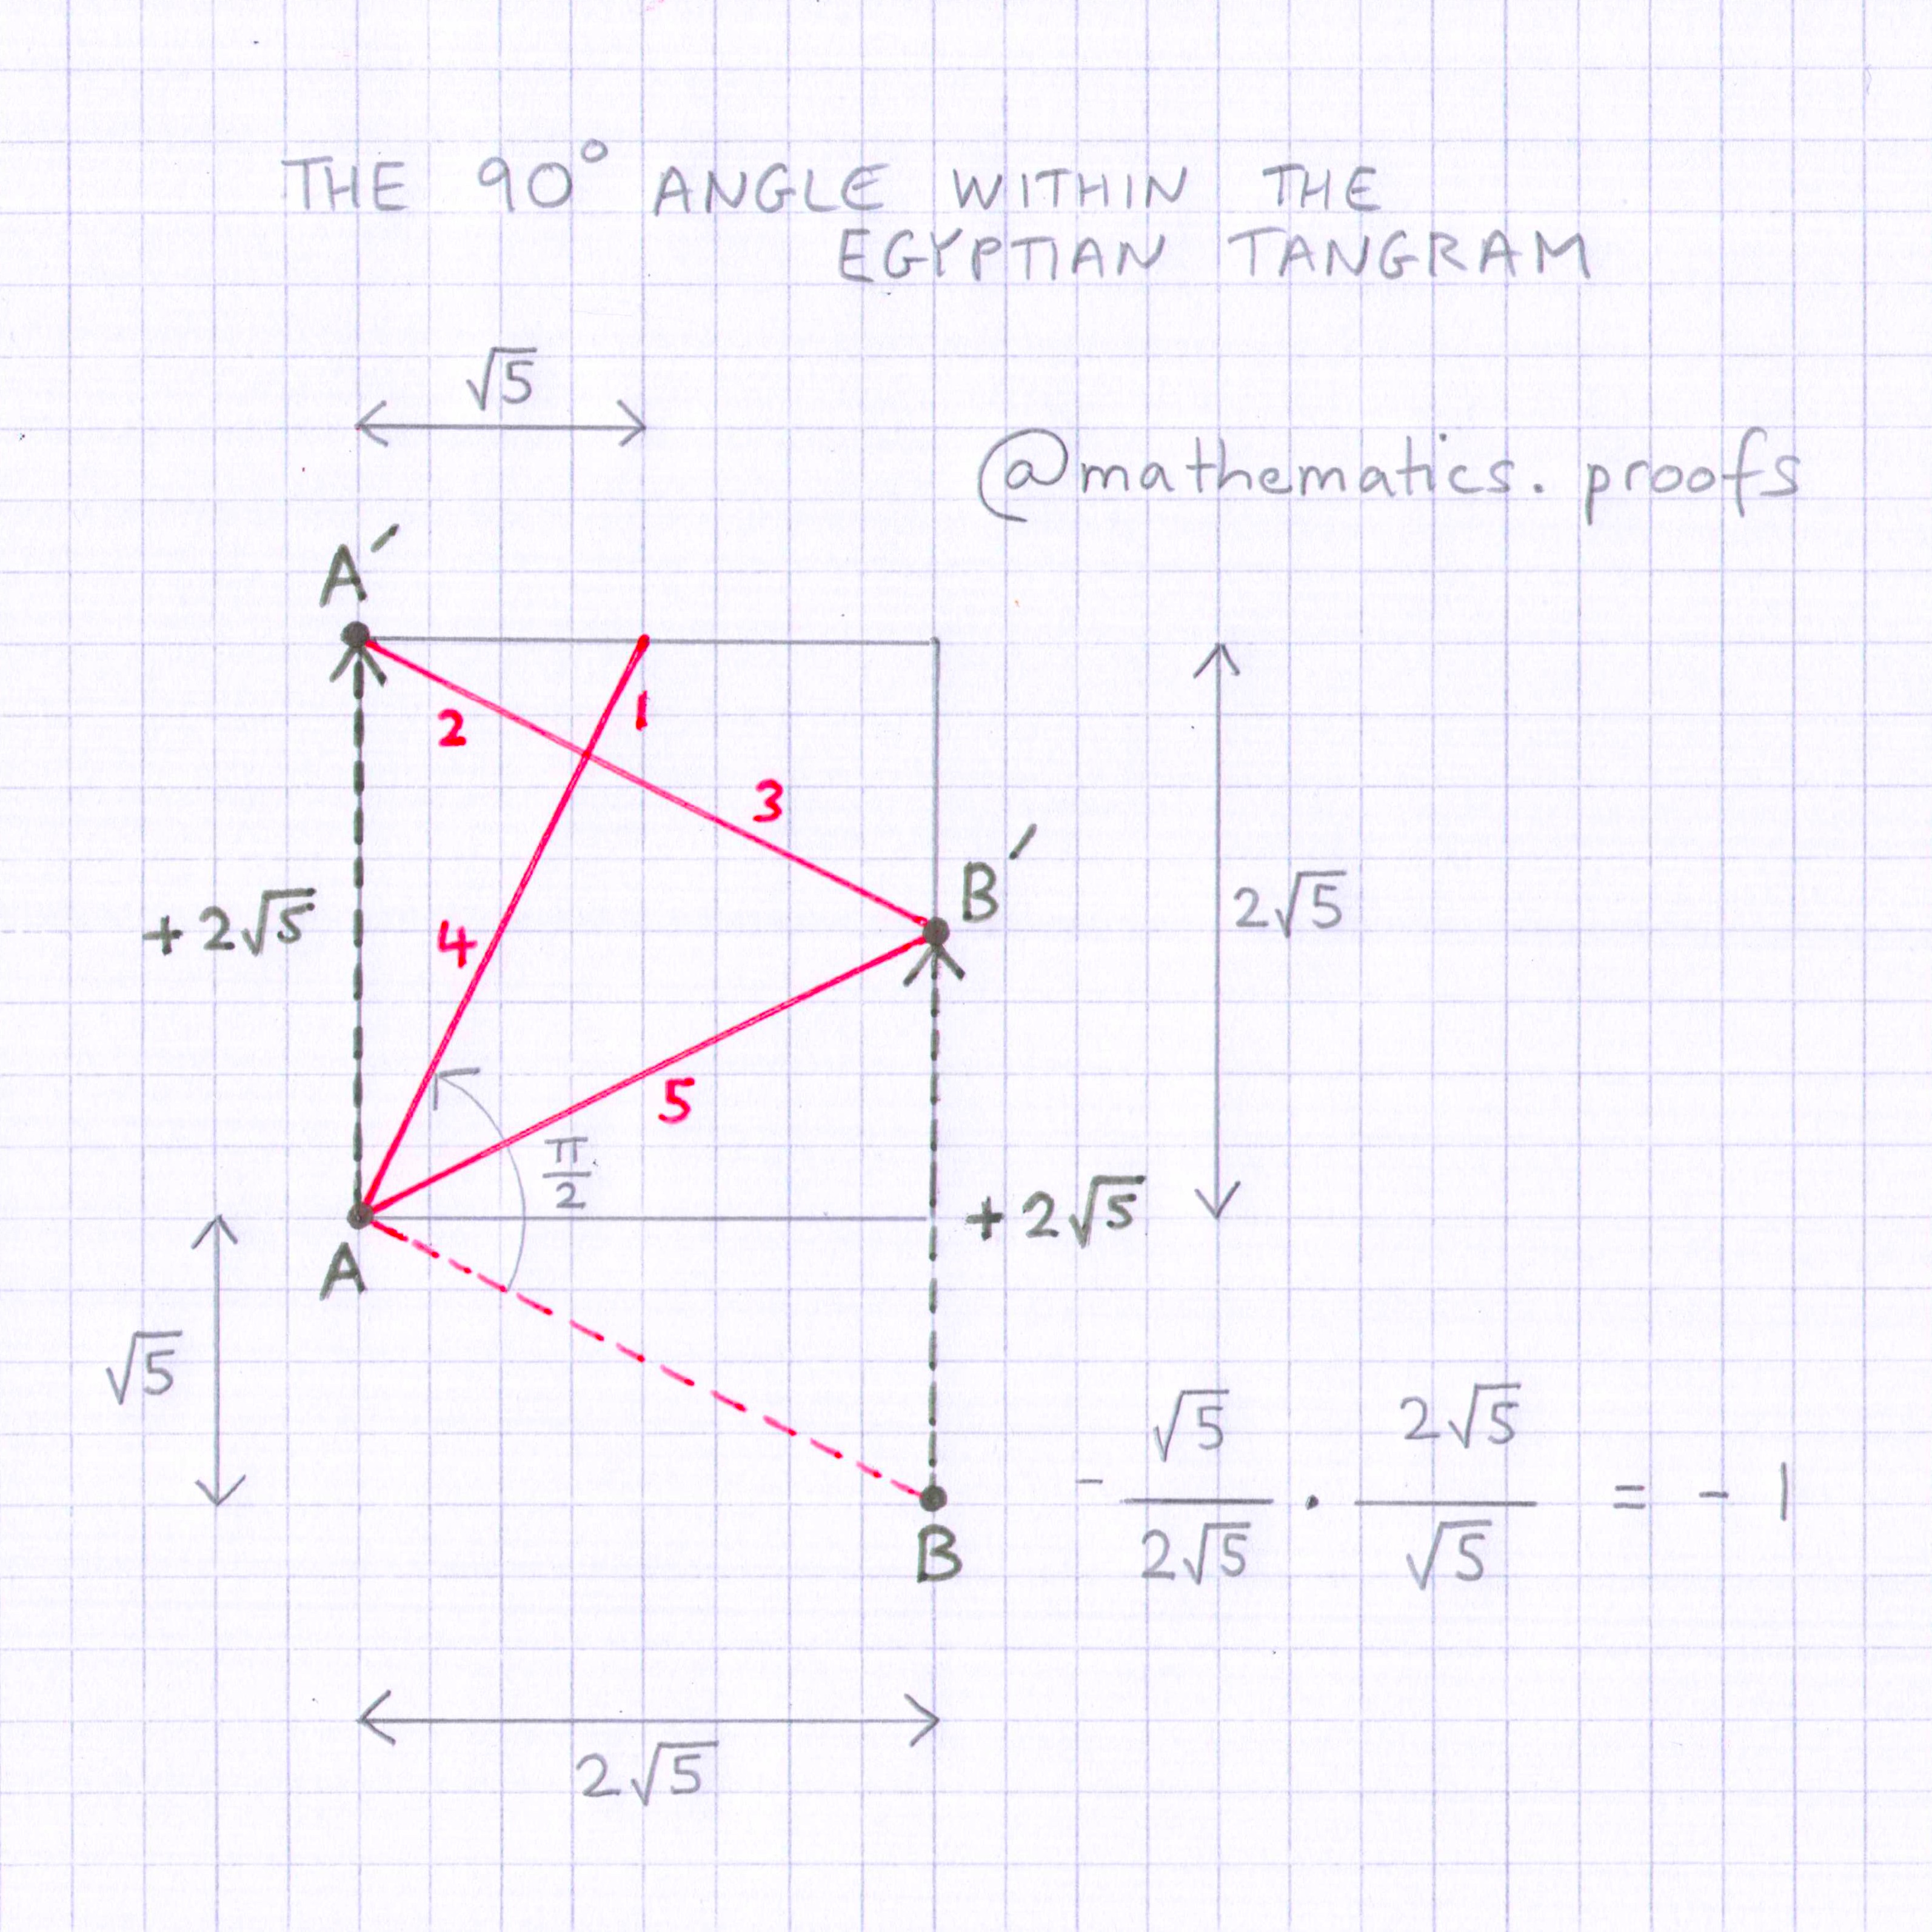 THE 90° ANGLE WITHIN THE
EGYPTIAN TANGRAM
√5
@mathematics.proofs
A′
1
2
3
B′
+2√5
2√5
4
5
π/2
+2√5
A
√5
B
-√5/2√5 · 2√5/√5 = -1
2√5